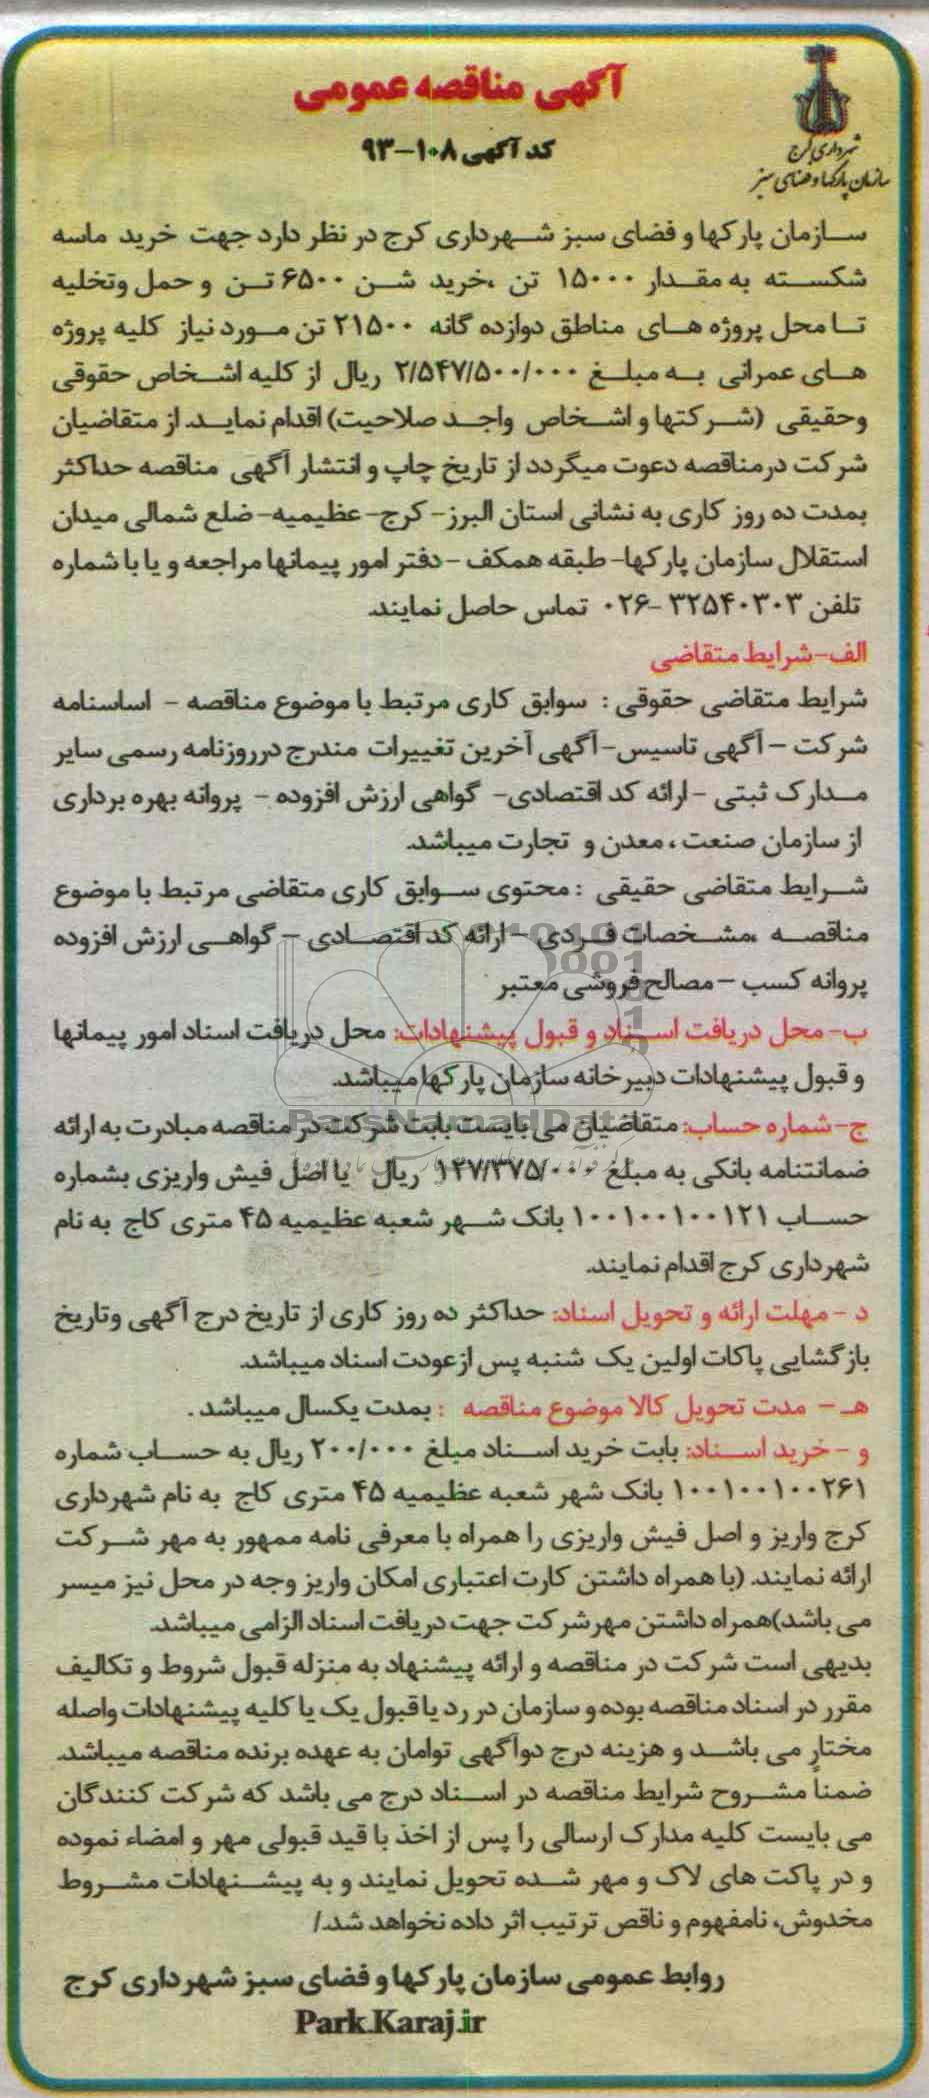 شهرداری کرج
سازمان پارکها و فضای سبز
آگهی مناقصه عمومی
کد آگهی ۱۰۸-۹۳
سازمان پارکها و فضای سبز شهرداری کرج در نظر دارد جهت خرید ماسه
شکسته به مقدار ۱۵۰۰۰ تن ،خرید شن ۶۵۰۰ تن و حمل وتخلیه
تا محل پروژه های مناطق دوازده گانه ۲۱۵۰۰ تن مورد نیاز کلیه پروژه
های عمرانی به مبلغ ۲/۵۴۷/۵۰۰/۰۰۰ ریال از کلیه اشخاص حقوقی
وحقیقی (شرکتها و اشخاص واجد صلاحیت) اقدام نماید. از متقاضیان
شرکت درمناقصه دعوت میگردد از تاریخ چاپ و انتشار آگهی مناقصه حداکثر
بمدت ده روز کاری به نشانی استان البرز- کرج- عظیمیه- ضلع شمالی میدان
استقلال سازمان پارکها- طبقه همکف -دفتر امور پیمانها مراجعه و یا با شماره
تلفن ۳۲۵۴۰۳۰۳ -۰۲۶ تماس حاصل نمایند.
الف-شرایط متقاضی
شرایط متقاضی حقوقی : سوابق کاری مرتبط با موضوع مناقصه - اساسنامه
شرکت – آگهی تاسیس-آگهی آخرین تغییرات مندرج درروزنامه رسمی سایر
مدارک ثبتی -ارائه کد اقتصادی- گواهی ارزش افزوده - پروانه بهره برداری
از سازمان صنعت ، معدن و تجارت میباشد.
شرایط متقاضی حقیقی : محتوی سوابق کاری متقاضی مرتبط با موضوع
مناقصه ،مشخصات فردی -ارائه کد اقتصادی – گواهی ارزش افزوده
پروانه کسب – مصالح فروشی معتبر
ب- محل دریافت اسناد و قبول پیشنهادات: محل دریافت اسناد امور پیمانها
و قبول پیشنهادات دبیرخانه سازمان پارکها میباشد.
ParsNamadData
ج-شماره حساب: متقاضیان می بایست بابت شرکت در مناقصه مبادرت به ارائه
ضمانتنامه بانکی به مبلغ ۱۲۷/۳۷۵/۰۰۰ ریال یا اصل فیش واریزی بشماره
حساب ۱۰۰۱۰۰۱۰۰۱۲۱ بانک شهر شعبه عظیمیه ۴۵ متری کاج به نام
شهرداری کرج اقدام نمایند.
د - مهلت ارائه و تحویل اسناد: حداکثر ده روز کاری از تاریخ درج آگهی وتاریخ
بازگشایی پاکات اولین یک شنبه پس ازعودت اسناد میباشد.
هـ – مدت تحویل کالا موضوع مناقصه : بمدت یکسال میباشد .
و - خرید اسناد: بابت خرید اسناد مبلغ ۲۰۰/۰۰۰ ریال به حساب شماره
۱۰۰۱۰۰۱۰۰۲۶۱ بانک شهر شعبه عظیمیه ۴۵ متری کاج به نام شهرداری
کرج واریز و اصل فیش واریزی را همراه با معرفی نامه ممهور به مهر شرکت
ارائه نمایند. (با همراه داشتن کارت اعتباری امکان واریز وجه در محل نیز میسر
می باشد)همراه داشتن مهرشرکت جهت دریافت اسناد الزامی میباشد.
بدیهی است شرکت در مناقصه و ارائه پیشنهاد به منزله قبول شروط و تکالیف
مقرر در اسناد مناقصه بوده و سازمان در رد یا قبول یک یا کلیه پیشنهادات واصله
مختار می باشد و هزینه درج دوآگهی توامان به عهده برنده مناقصه میباشد.
ضمناً مشروح شرایط مناقصه در اسناد درج می باشد که شرکت کنندگان
می بایست کلیه مدارک ارسالی را پس از اخذ با قید قبولی مهر و امضاء نموده
و در پاکت های لاک و مهر شده تحویل نمایند و به پیشنهادات مشروط
مخدوش، نامفهوم و ناقص ترتیب اثر داده نخواهد شد./
روابط عمومی سازمان پارکها و فضای سبز شهرداری کرج
Park.Karaj.ir